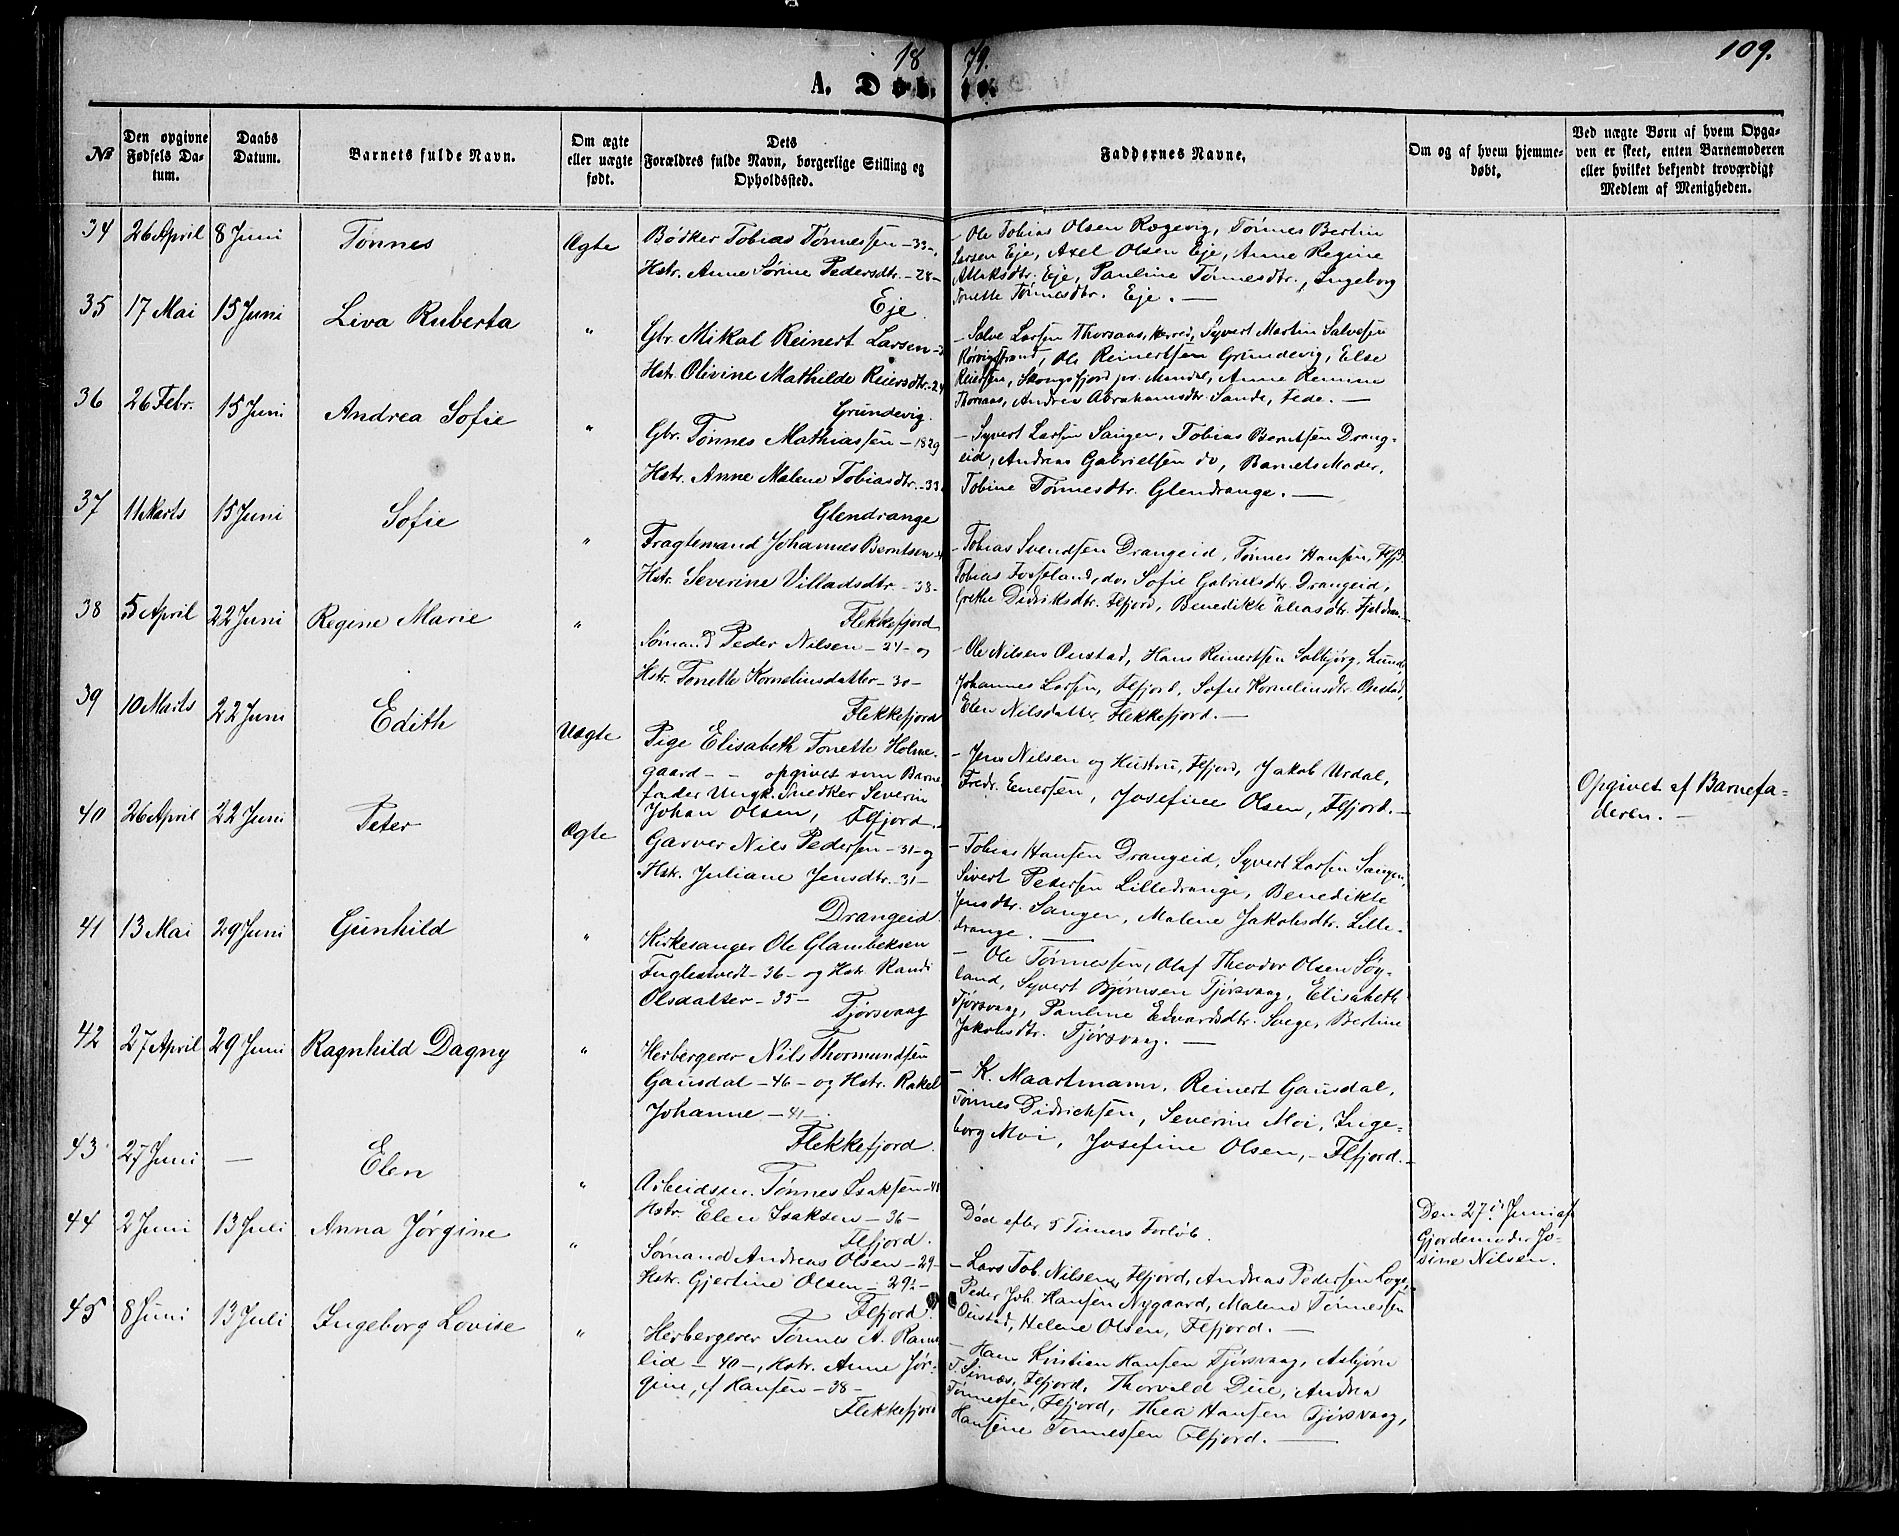 1879.
109.
A. Døbte.
No
Den opgivne Fødsels Datum.
Daabs Datum.
Barnets fulde Navn.
Om ægte eller uægte født.
Dets Forældres fulde Navn, borgerlige Stilling og Opholdssted.
Faddernes Navne.
Om og af hvem hjemmedøbt.
Ved uægte Børn af hvem Opgaven er skeet, enten Barnemoderen eller hvilket bekjendt troværdigt Medlem af Menigheden.
34 26 April 8 Juni Tønnes Ægte
Bødker Tobias Tønnessen - 35 -,
Hstr. Anne Sørine Pedersdtr. - 28 -
Eje
- Ole Tobias Olsen Rægevig, Tønnes Bertin
Larsen Eje, Axel Olsen Eje, Anne Regine
Atlaksdtr. Eje, Pauline Tønnesdtr., Ingeborg
Tonette Tønnesdtr. Eje. -
35 17 Mai 15 Juni Liva Ruberta "
Gbr. Mikal Reinert Larsen -
Hstr. Olivine Mathilde Reiersdtr. 24
Grundevig.
- Salve Larsen Syvert Martin Salvesen
Ole Reinertsen Grundevig, Else
Anne
Andrea Abrahamsdtr. Sande, Fede. -
36 26 Febr. 15 Juni Andrea Sofie "
Gbr. Tønnes Mathiassen - 1829
Hstr. Anne Malene Tobiasdtr. - 33
Glendrange
- Syvert Larsen Sanger, Tobias Berntsen Drang-
eid, Andreas Gabrielsen do, Barnets Moder,
Tobine Tønnesdtr. Glendrange. -
37 11 Marts 15 Juni Sofie "
Fragtemand Johannes Berntsen
Hstr. Severine Villadsdtr. - 38 -
Flekkefjord
- Tobias Svendsen Drangeid, Tønnes Hansen, Flfjd.
Tobias Fosseland, do, Sofie Gabrielsdtr. Drangeid,
Grethe Didriksdtr. Flfjord, Benedikte Eliasdtr.
38 5 April 22 Juni Regine Marie "
Sømand Peder Nilsen - 24 - og
Hstr. Tonette Kornelinsdatter - 30 -
Flekkefjord
- Ole Nilsen Onstad, Hans Reinertsen Solbjørg, Lund,
Johannes Larsen, Flfjord, Sofie Kornelinsdtr. Onstad,
Elen Nilsdatter Flekkefjord. -
39 10 Marts 22 Juni Edith Uægte
Pige Elisabeth Tonette Holme-
gaard - - opgives som Barne-
fader Ungk. Snedker Severin
Johan Olsen, Flfjord. -
- Jens Nilsen og Hustru, Flfjord, Jakob Urdal,
Fredr. Enersen, Josefine Olsen, Flfjord. -
Opgivet af Barnefa-
deren. -
40 26 April 22 Juni Peter Ægte
Garver Nils Pedersen - 31 - og
Hstr. Juliane Jensdtr. - 31 -
Drangeid.
- Tobias Hansen Drangeid, Syvert Larsen Sanger,
Sivert Pedersen Lilledrange, Benedikte
Jensdtr. Sanger, Malene Jakobsdtr. Lille-
drange. -
41 13 Mai 29 Juni Gunhild "
Kirkesanger Ole Glambeksen
Fuglestvedt - 36 - og Hstr. Randi
Olsdatter - 35 -
Tjørsvaag
- Ole Tønnessen, Olaf Theodor Olsen Søy-
land, Syvert Bjørnsen Tjørsvaag, Elisabeth
Tjørsvaag, Pauline Edvardsdtr. Svege, Bertine
Jakobsdtr. Tjørsvaag. -
42 27 April 29 Juni Ragnhild Dagny "
Herbergerer Nils Thormundsen
Gausdal - 46 - og Hstr. Rakel
Johanne - 41 -
Flekkefjord.
- K. Maartmann, Reinert Gausdal,
Tønnes Didrichsen, Severine Moi, Inge-
borg Moi, Josefine Olsen, - Flfjord. -
43 27 Juni - Elen "
Arbeidsm. Tønnes Isaksen - 41
Hstr. Elen Isaksen - 36 -
Flfjord.
Død efter 5 Timers Forløb.
Den 27de Juni af
Gjordemoder Jo-
sine Nilsen.
44 2 Juni 13 Juli Anna Jørgine "
Sømand Andreas Olsen - 29 -
Hstr. Gjertine Olsen - 29 -
Flfjord.
- Lars Tob. Nilsen, Flfjord, Andreas Pedersen Loge,
Peder Joh. Hansen Nygaard, Malene Tønnessen
Onstad, Helene Olsen, Flfjord. -
45 8 Juni 13 Juli Ingeborg Lovise "
Herbergerer Tønnes A. Rams-
lid - 40 -, Hstr. Anne Jør-
gine, f Hansen - 38 -
Flekkefjord
- Hans Kristian Hansen Tjørsvaag, Asbjørn
T. Sirnæs, Flfjord, Thorvald Due, Andrea
Tønnessen, Flfjord, Thea Hansen Tjørsvaag,
Hansine Tønnessen Flfjord. -